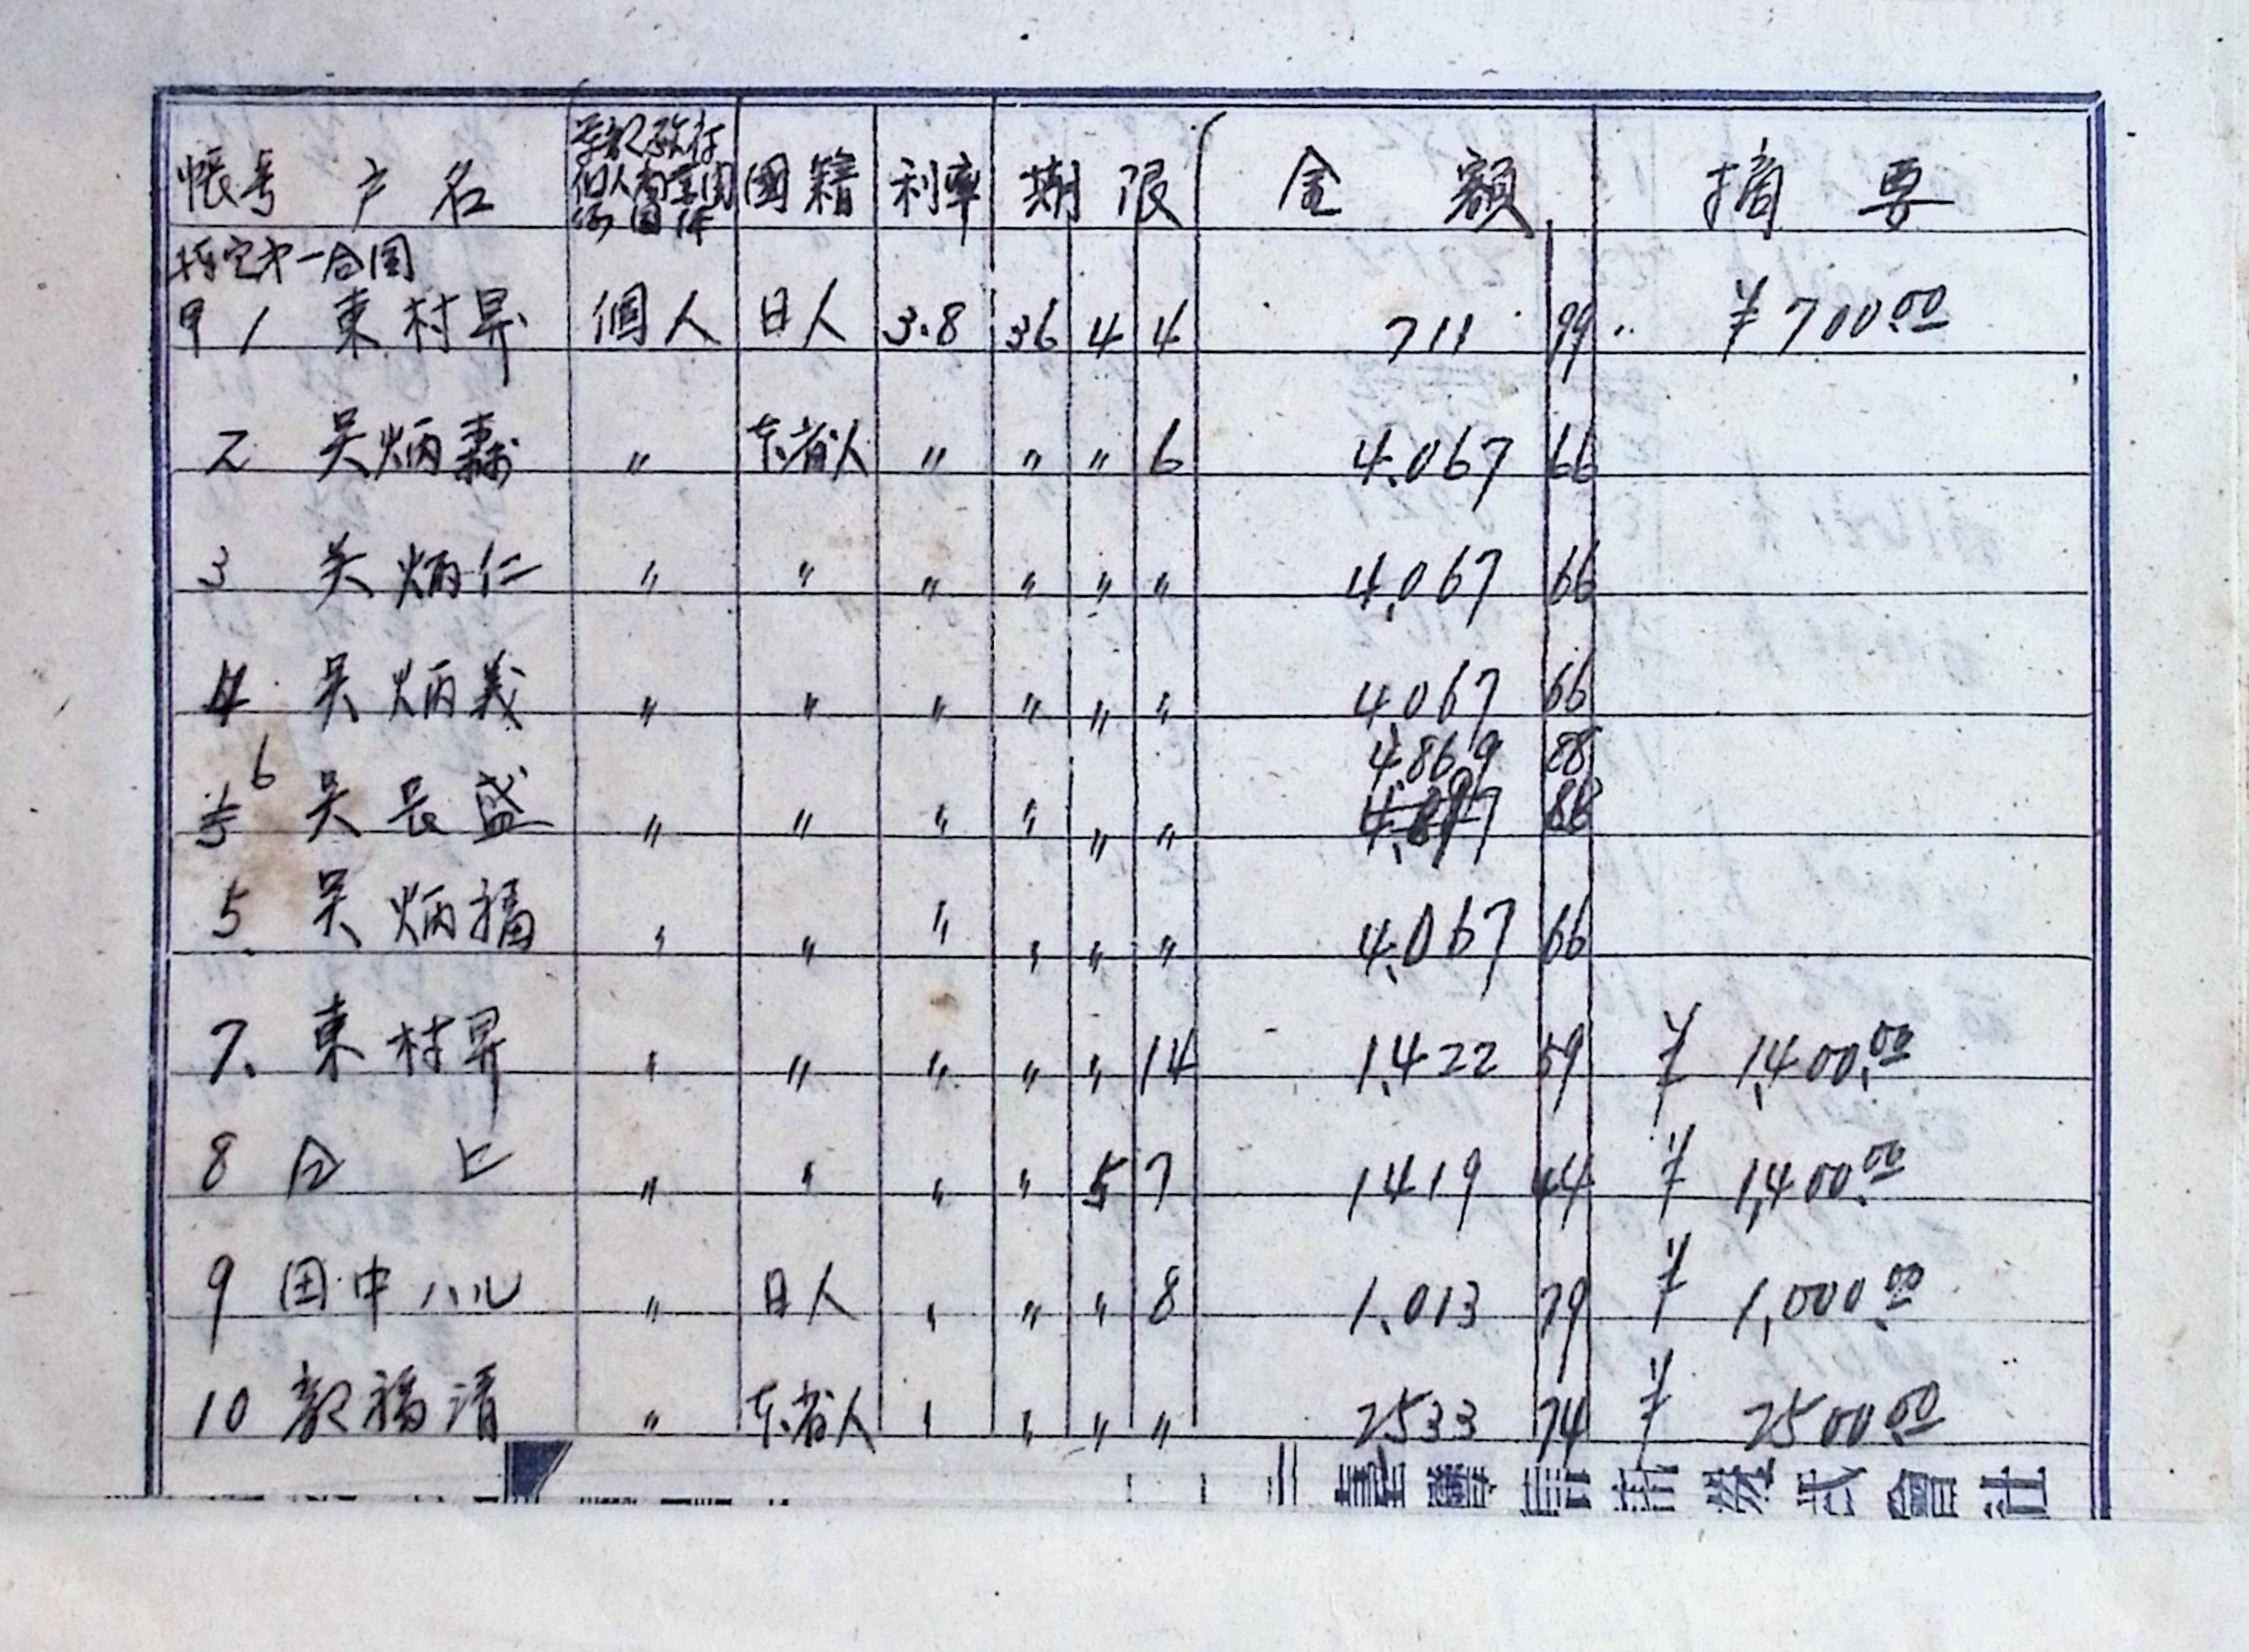 帐号 户名 國籍 利率 期限 金額 摘要
甲1 東村昇 個人 日人 3.8 36 4 4 711 99 ¥700.00
2 吴炳壽 〃 本省人 〃 〃 〃 6 4,067 66
3 吴炳仁 〃 〃 〃 〃 〃 〃 4,067 66
4 吴炳義 〃 〃 〃 〃 〃 〃 4,067 66
4,869 88
6 吴長盛 〃 〃 〃 〃 〃 〃
5 吴炳福 〃 〃 〃 〃 〃 〃 4,067 66
7. 東村昇 〃 〃 〃 〃 〃 14 1,422 59 ¥1,400.00
8 仝上 〃 〃 〃 〃 5 7 1419 44 ¥1,400.00
9 田中ハル 〃 日人 〃 〃 〃 8 1,013 79 ¥1,000.00
10 福清 〃 本省人 〃 〃 〃 〃 2533 74 ¥2500.00
式會社